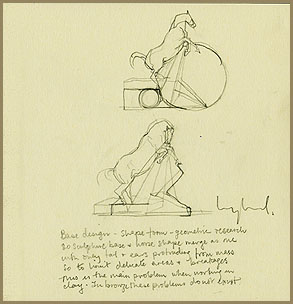 Base design - shape form - geometric research
so sculpture base & horse shape merge as one
with only tail & ears protruding from mass
so to limit delicate areas & breakages
this is the main problem when working in
clay. In bronze these problems don't exist